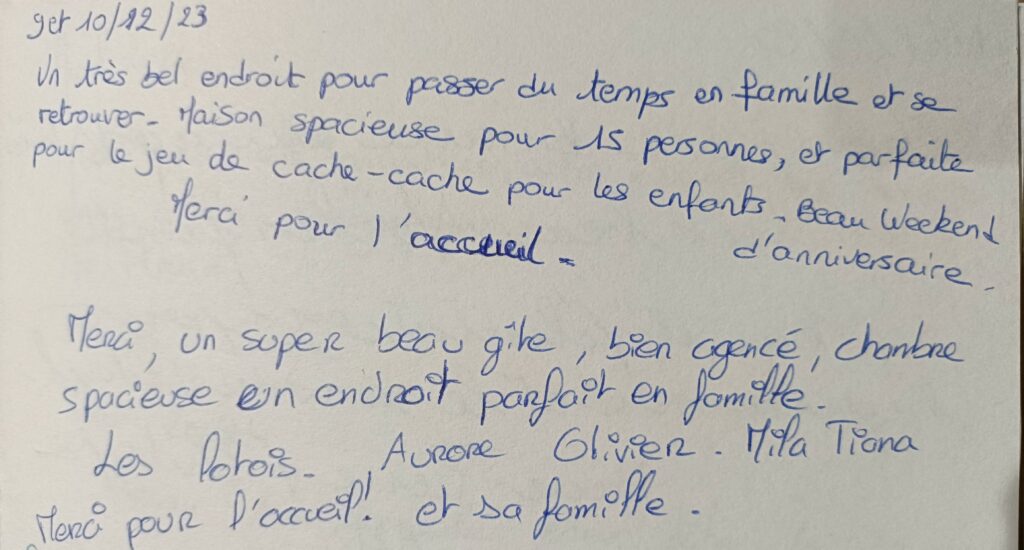 get 10/12/23
Un très bel endroit pour passer du temps en famille et se
retrouver - Maison spacieuse pour 15 personnes, et parfaite
pour le jeu de cache-cache pour les enfants - Beau Weekend
d'anniversaire -
Merci pour l'accueil -
Merci, un super beau gîte, bien agencé, chambre
spacieuse un endroit parfait en famille.
Les - Aurore Olivier - Mila Tiana
Merci pour l'accueil! et sa famille.